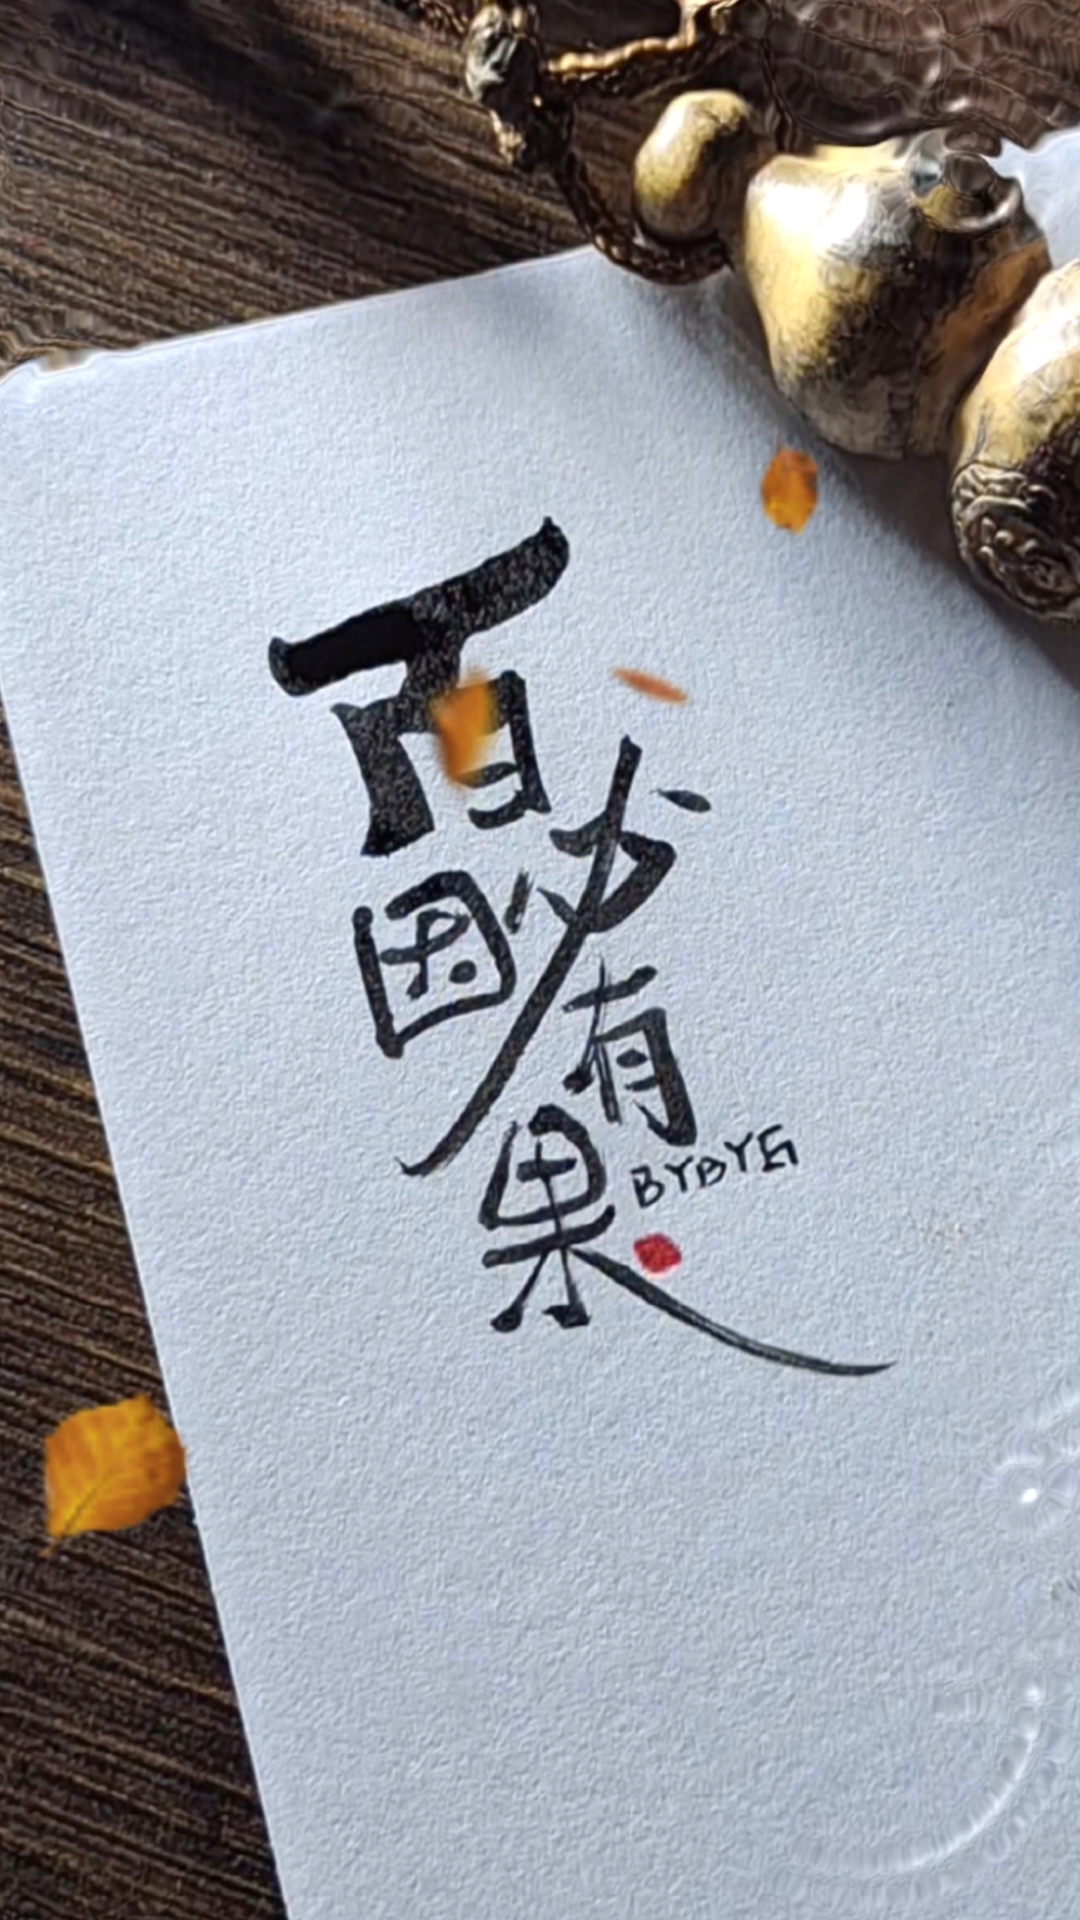 百因必有果
BYBYG